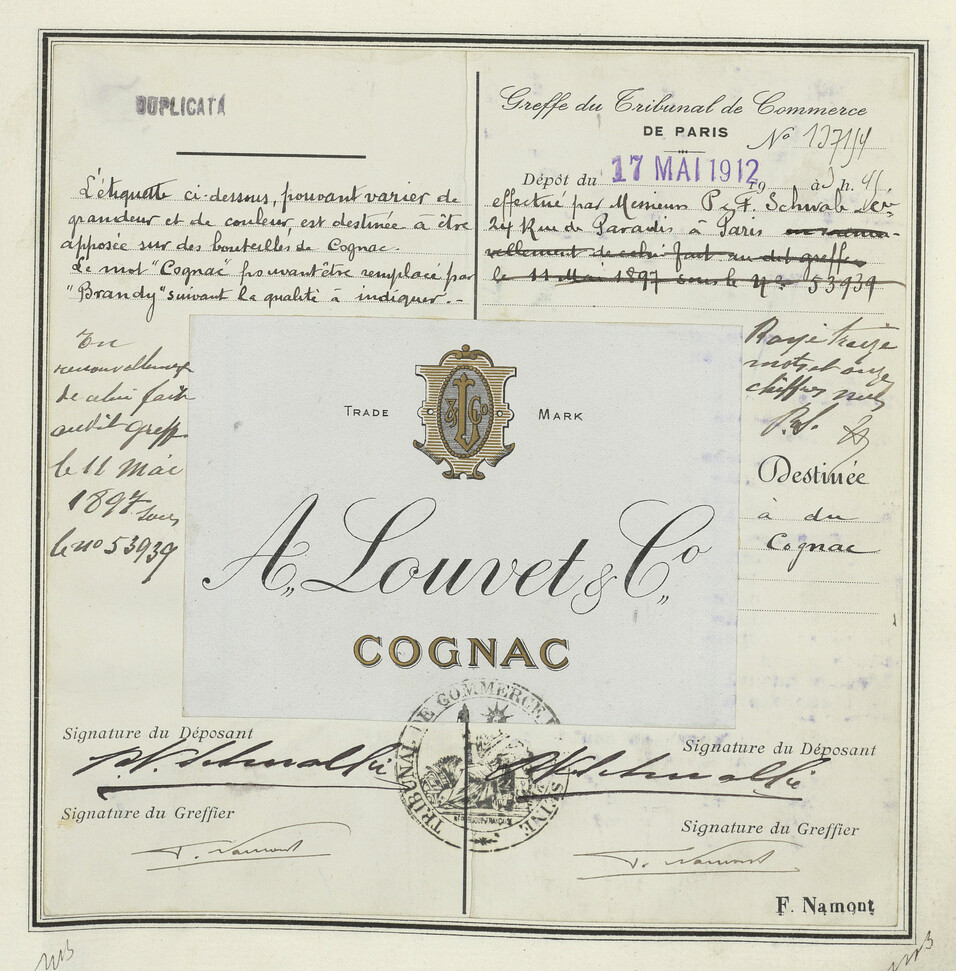 DUPLICATA
L'étiquette ci-dessus, pouvant varier de
grandeur et de couleur, est destinée à être
apposée sur des bouteilles de Cognac.
Le mot "Cognac" pouvant être remplacé par
"Brandy" suivant la qualité à indiquer.-
En
renouvellement
de celui fait
audit Greffe
le 11 Mai
1897 sous
le no 53939
Greffe du Tribunal de Commerce
DE PARIS
No
Dépôt du 17 MAI 1912 19 à 3 h. 45.
effectué par Messieurs P. & F. Schwab & Cie
24 Rue de Paradis à Paris en renou-
vellement de celui fait au dit greffe
le 11 Mai 1897 sous le no 53939
Rayé treize
mots et onze
chiffres nuls
Destinée
à du
Cognac
TRADE MARK
L & Co
A. Louvet & Co.
COGNAC
TRIBUNAL DE COMMERCE SEINE
Signature du Déposant
Signature du Déposant
Signature du Greffier
F. Namont
Signature du Greffier
F. Namont
F. Namont